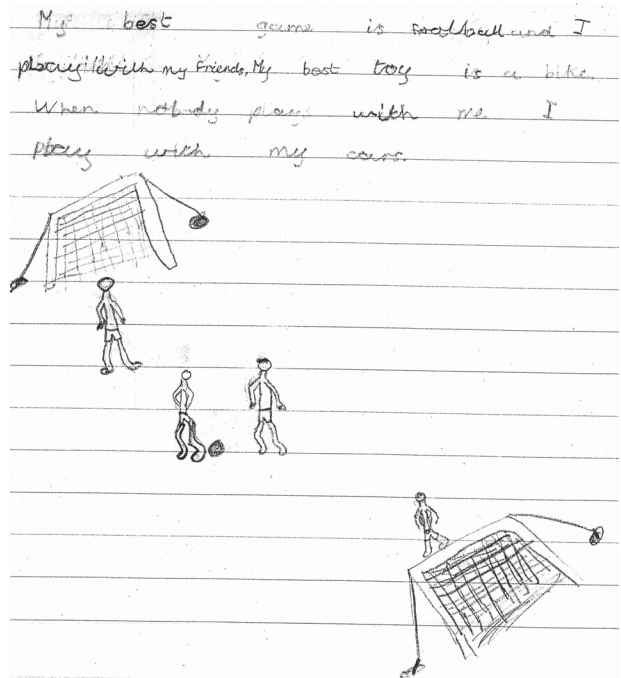 My best game is football and I
play with my Friends, My best toy is a bike.
When nobdy plays with me I
play with my cars.